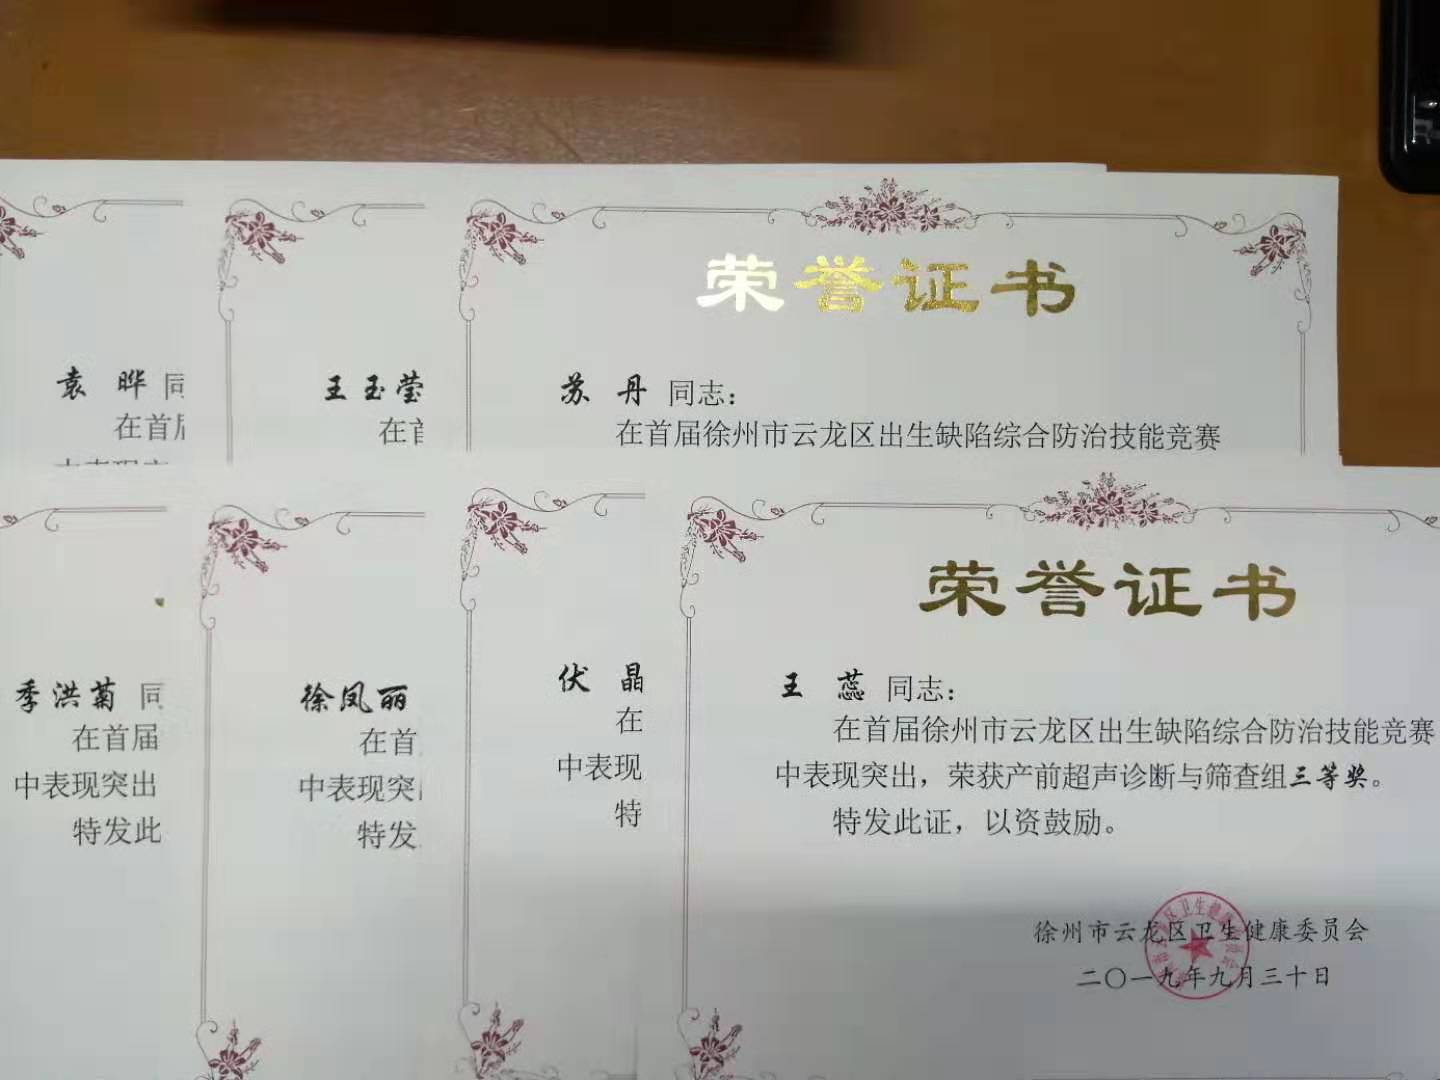 荣誉证书
袁晔同
在首
王玉莹
在
苏丹同志：
在首届徐州市云龙区出生缺陷综合防治技能竞赛
季洪菊同
在首届
中表现突出
特发此
徐凤丽
在首
中表现突
特发
伏晶
在
中表现
特
荣誉证书
王蕊同志：
在首届徐州市云龙区出生缺陷综合防治技能竞赛
中表现突出，荣获产前超声诊断与筛查组三等奖。
特发此证，以资鼓励。
徐州市云龙区卫生健康委员会
二〇一九年九月三十日